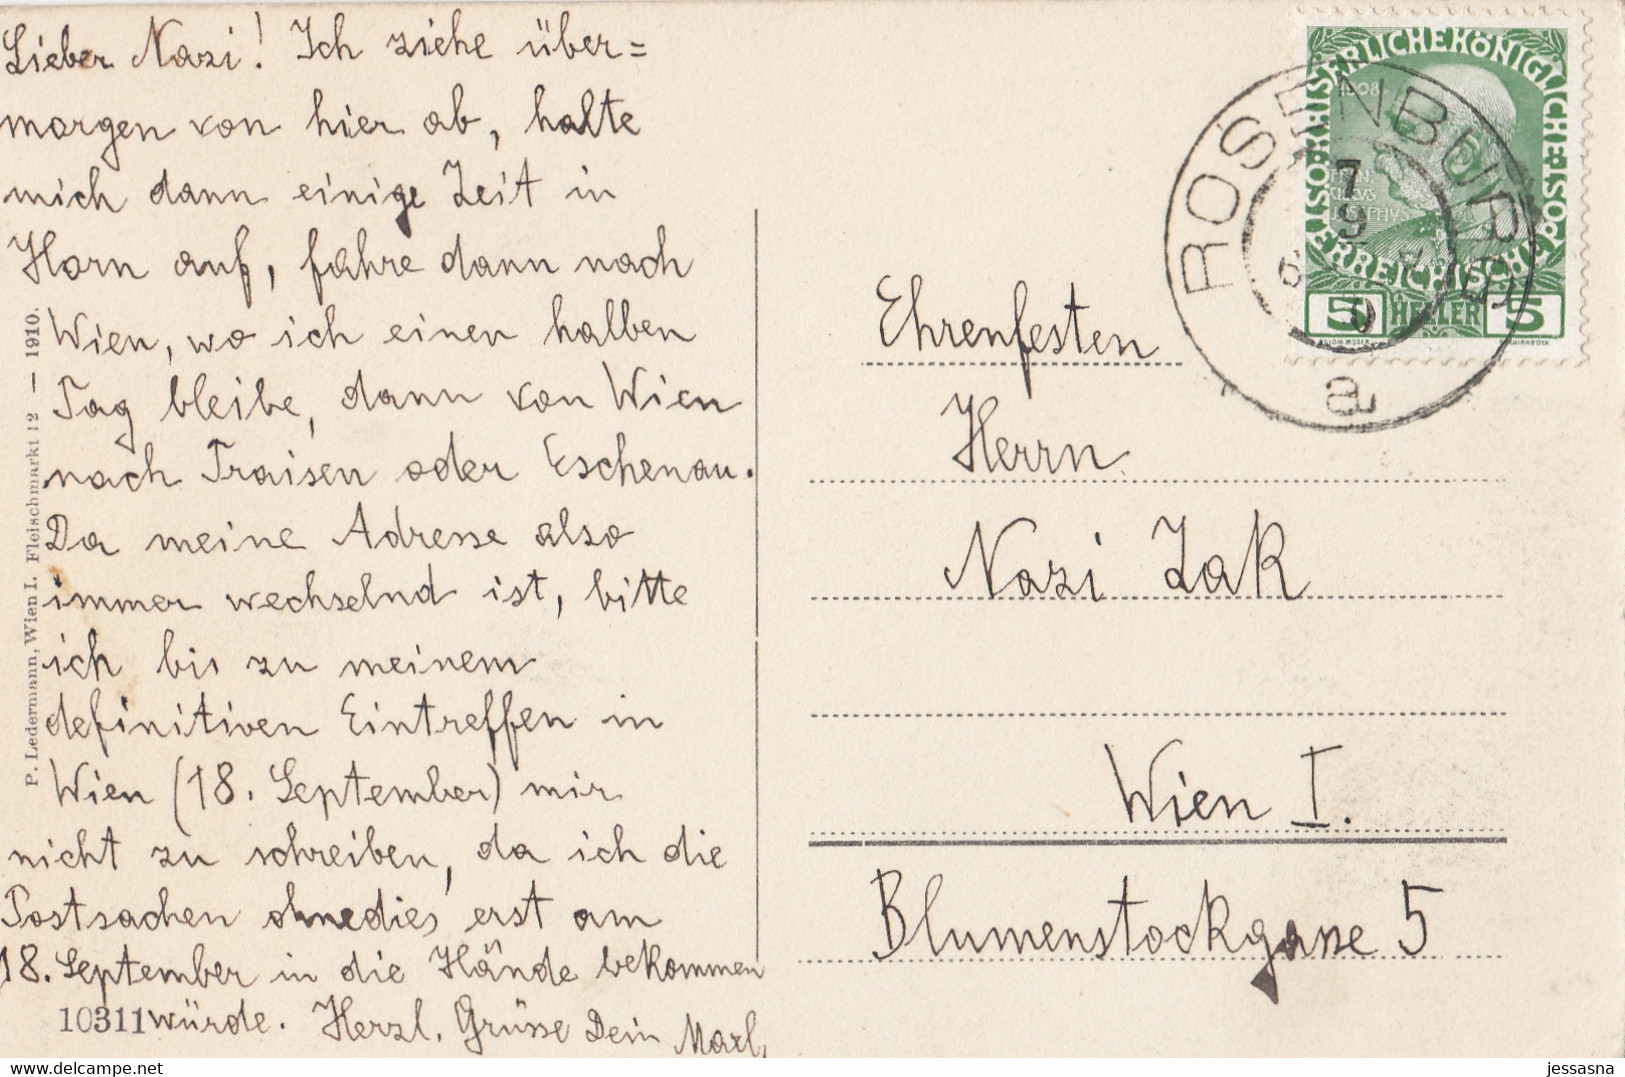 Lieber Nazi! Ich ziehe über=
morgen von hier ab, halte
mich dann einige Zeit in
Horn auf, fahre dann nach
Wien, wo ich einen halben
Tag bleibe, dann von Wien
nach Traisen oder Eschenau.
Da meine Adresse also
immer wechselnd ist, bitte
ich bis zu meinem
definitiven Eintreffen in
Wien (18. September) mir
nicht zu schreiben, da ich die
Postsachen ohnedies erst am
18. September in die Hände bekommen
würde. Herzl. Grüsse Dein Marl,
10311
P. Ledermann, Wien I. Fleischmarkt 12 — 1910.
KAISERLICHEKÖNIGLICHE
ÖSTERREICHISCHE POST
1908
FRAN
CISCUS
JOSEPHVS
5 HELLER 5
KOLOM. MOSER
ROSENBURG
7
9
a
Ehrenfesten
Herrn
Nazi Zak
Wien I.
Blumenstockgasse 5
jessasna